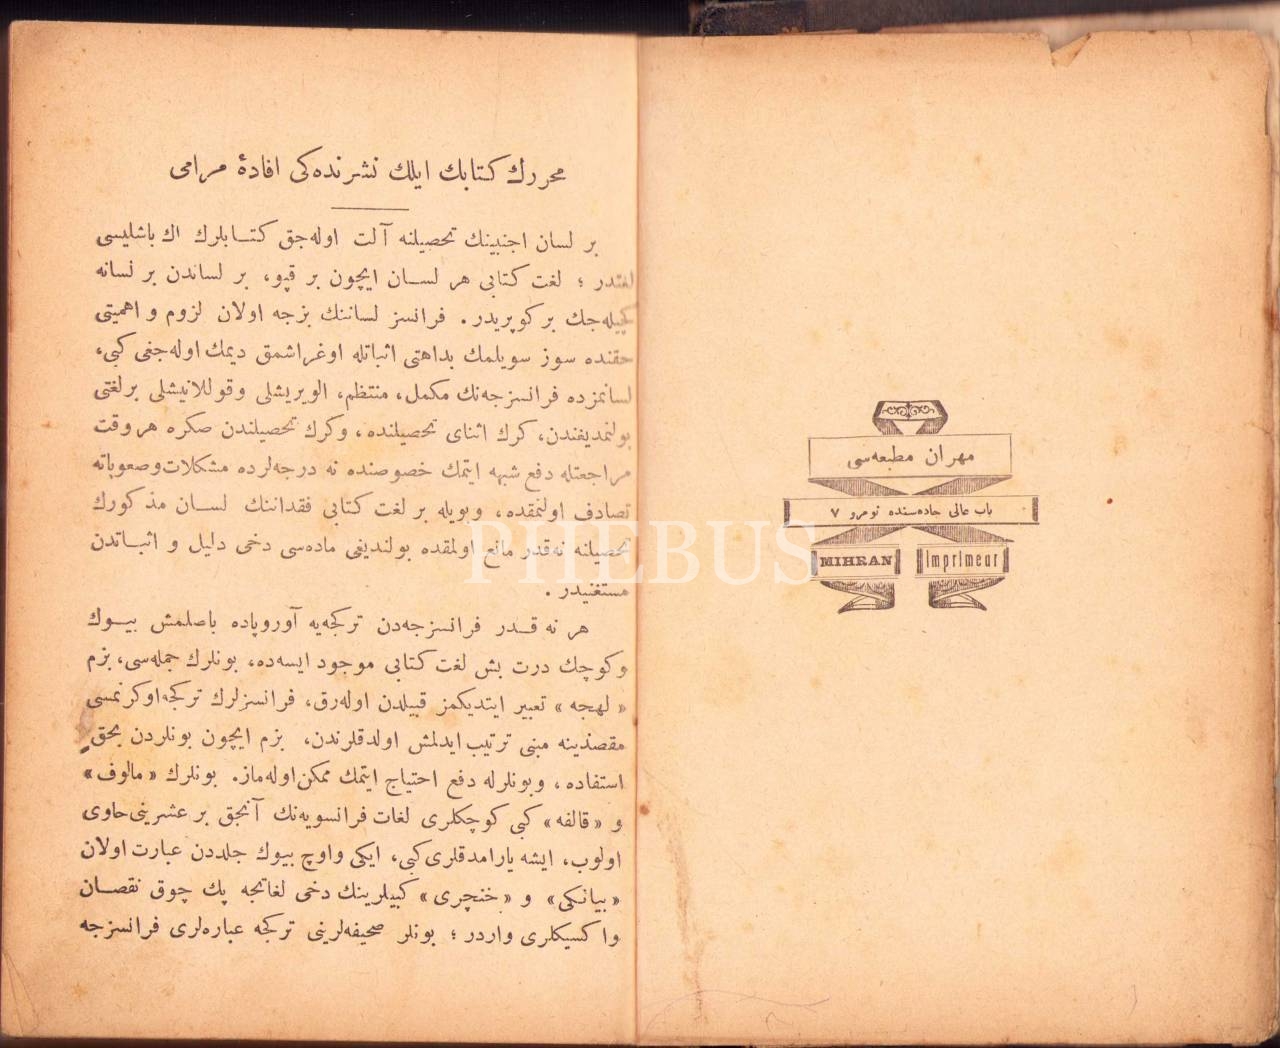 مهران مطبعه‌سی
باب عالی جاده‌سنده نومرو ٧
MIHRAN Imprimeur
محررك كتابك ایلك نشرنده‌كی افادهٔ مرامی
بر لسان اجنبینك تحصیلنه آلت اوله‌جق كتابلرك اك باشلیسی
لغتدر ؛ لغت كتابی هر لسان ایچون بر قپو، بر لساندن بر لسانه
كچیله‌جك بر كوپریدر. فرانسز لساننك بزجه اولان لزوم و اهمیتی
حقنده سوز سویلمك بداهتی اثباتله اوغراشمق دیمك اوله‌جغی كبی،
لسانمزده فرانسزجه‌نك مكمل، منتظم، الویریشلی وقوللانیشلی بر لغتی
بولنمدیغندن، كرك اثنای تحصیلنده، وكرك تحصیلندن صكره هر وقت
مراجعتله دفع شبهه ایتمك خصوصنده نه درجه‌لرده مشكلات وصعوباته
تصادف اولنمقده، وبویله بر لغت كتابی فقداننك لسان مذكورك
تحصیلنه نه‌قدر مانع اولمقده بولندیغی ماده‌سی دخی دلیل و اثباتدن
مستغنیدر .
هر نه قدر فرانسزجه‌دن تركجه‌یه آوروپاده باصلمش بیوك
وكوچك درت بش لغت كتابی موجود ایسه‌ده، بونلرك جمله‌سی، بزم
« لهجه » تعبیر ایتدیكمز قبیلدن اوله‌رق، فرانسزلرك تركجه اوكرنمسی
مقصدینه مبنی ترتیب ایدلمش اولدقلرندن، بزم ایچون بونلردن بحق
استفاده ، وبونلرله دفع احتیاج ایتمك ممكن اوله‌ماز. بونلرك « مالوف »
و « قالفه » كبی كوچكلری لغات فرانسویه‌نك آنجق بر عشرینی حاوی
اولوب، ایشه یارامدقلری كبی، ایكی واوچ بیوك جلددن عبارت اولان
« بیانكی » و « خنچری » كبیلرینك دخی لغاتجه پك چوق نقصان
واكسیكلری واردر ؛ بونلر صحیفه‌لرینی تركجه عباره‌لری فرانسزجه
PHEBUS